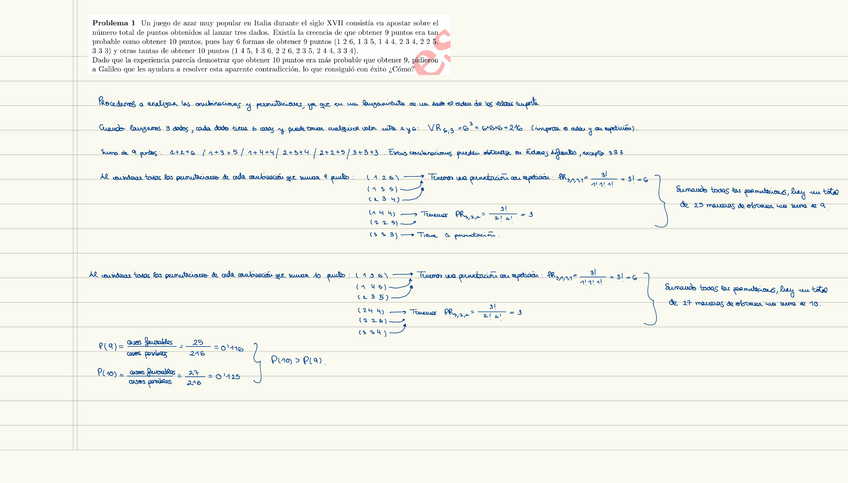 Problema 1 Un juego de azar muy popular en Italia durante el siglo XVII consistía en apostar sobre el
número total de puntos obtenidos al lanzar tres dados. Existía la creencia de que obtener 9 puntos era tan
probable como obtener 10 puntos, pues hay 6 formas de obtener 9 puntos (1 2 6, 1 3 5, 1 4 4, 2 3 4, 2 2 5,
3 3 3) y otras tantas de obtener 10 puntos (1 4 5, 1 3 6, 2 2 6, 2 3 5, 2 4 4, 3 3 4).
Dado que la experiencia parecía demostrar que obtener 10 puntos era más probable que obtener 9, pidieron
a Galileo que les ayudara a resolver esta aparente contradicción, lo que consiguió con éxito ¿Cómo?
es
Procedemos a analizar las combinaciones y permutaciones, ya que en un lanzamiento de un dado el orden de los
Cuando lanzamos 3 dados, cada dado tiene 6 caras y puede tomar cualquier valor entre 1 y 6: VR6,3 = 6³ = 6·6·6 = 216 (importa el orden y con repetición)
Suma de 9 puntos: 1+2+6 / 1+3+5 / 1+4+4 / 2+3+4 / 2+2+5 / 3+3+3. Estas combinaciones pueden obtenerse en órdenes diferentes, excepto 333
Al considerar todas las permutaciones de cada combinación que suman 9 puntos: (1 2 6) → Tenemos una permutación con repetición: PR3,1,1,1 = 3!/1!1!1! = 3! = 6
(1 3 5)
(2 3 4)
(1 4 4) → Tenemos PR3,2,1 = 3!/2!1! = 3
(2 2 5)
(3 3 3) → Tiene 1 permutación.
Sumando todas las permutaciones, hay un total
de 25 maneras de obtener una suma de 9.
Al considerar todas las permutaciones de cada combinación que suman 10 puntos: (1 3 6) → Tenemos una permutación con repetición: PR3,1,1,1 = 3!/1!1!1! = 3! = 6
(1 4 5)
(2 3 5)
(2 4 4) → Tenemos PR3,2,1 = 3!/2!1! = 3
(2 2 6)
(3 3 4)
Sumando todas las permutaciones, hay un total
de 27 maneras de obtener una suma de 10.
P(9) = casos favorables / casos posibles = 25/216 = 0'116
P(10) = casos favorables / casos posibles = 27/216 = 0'125
P(10) > P(9).